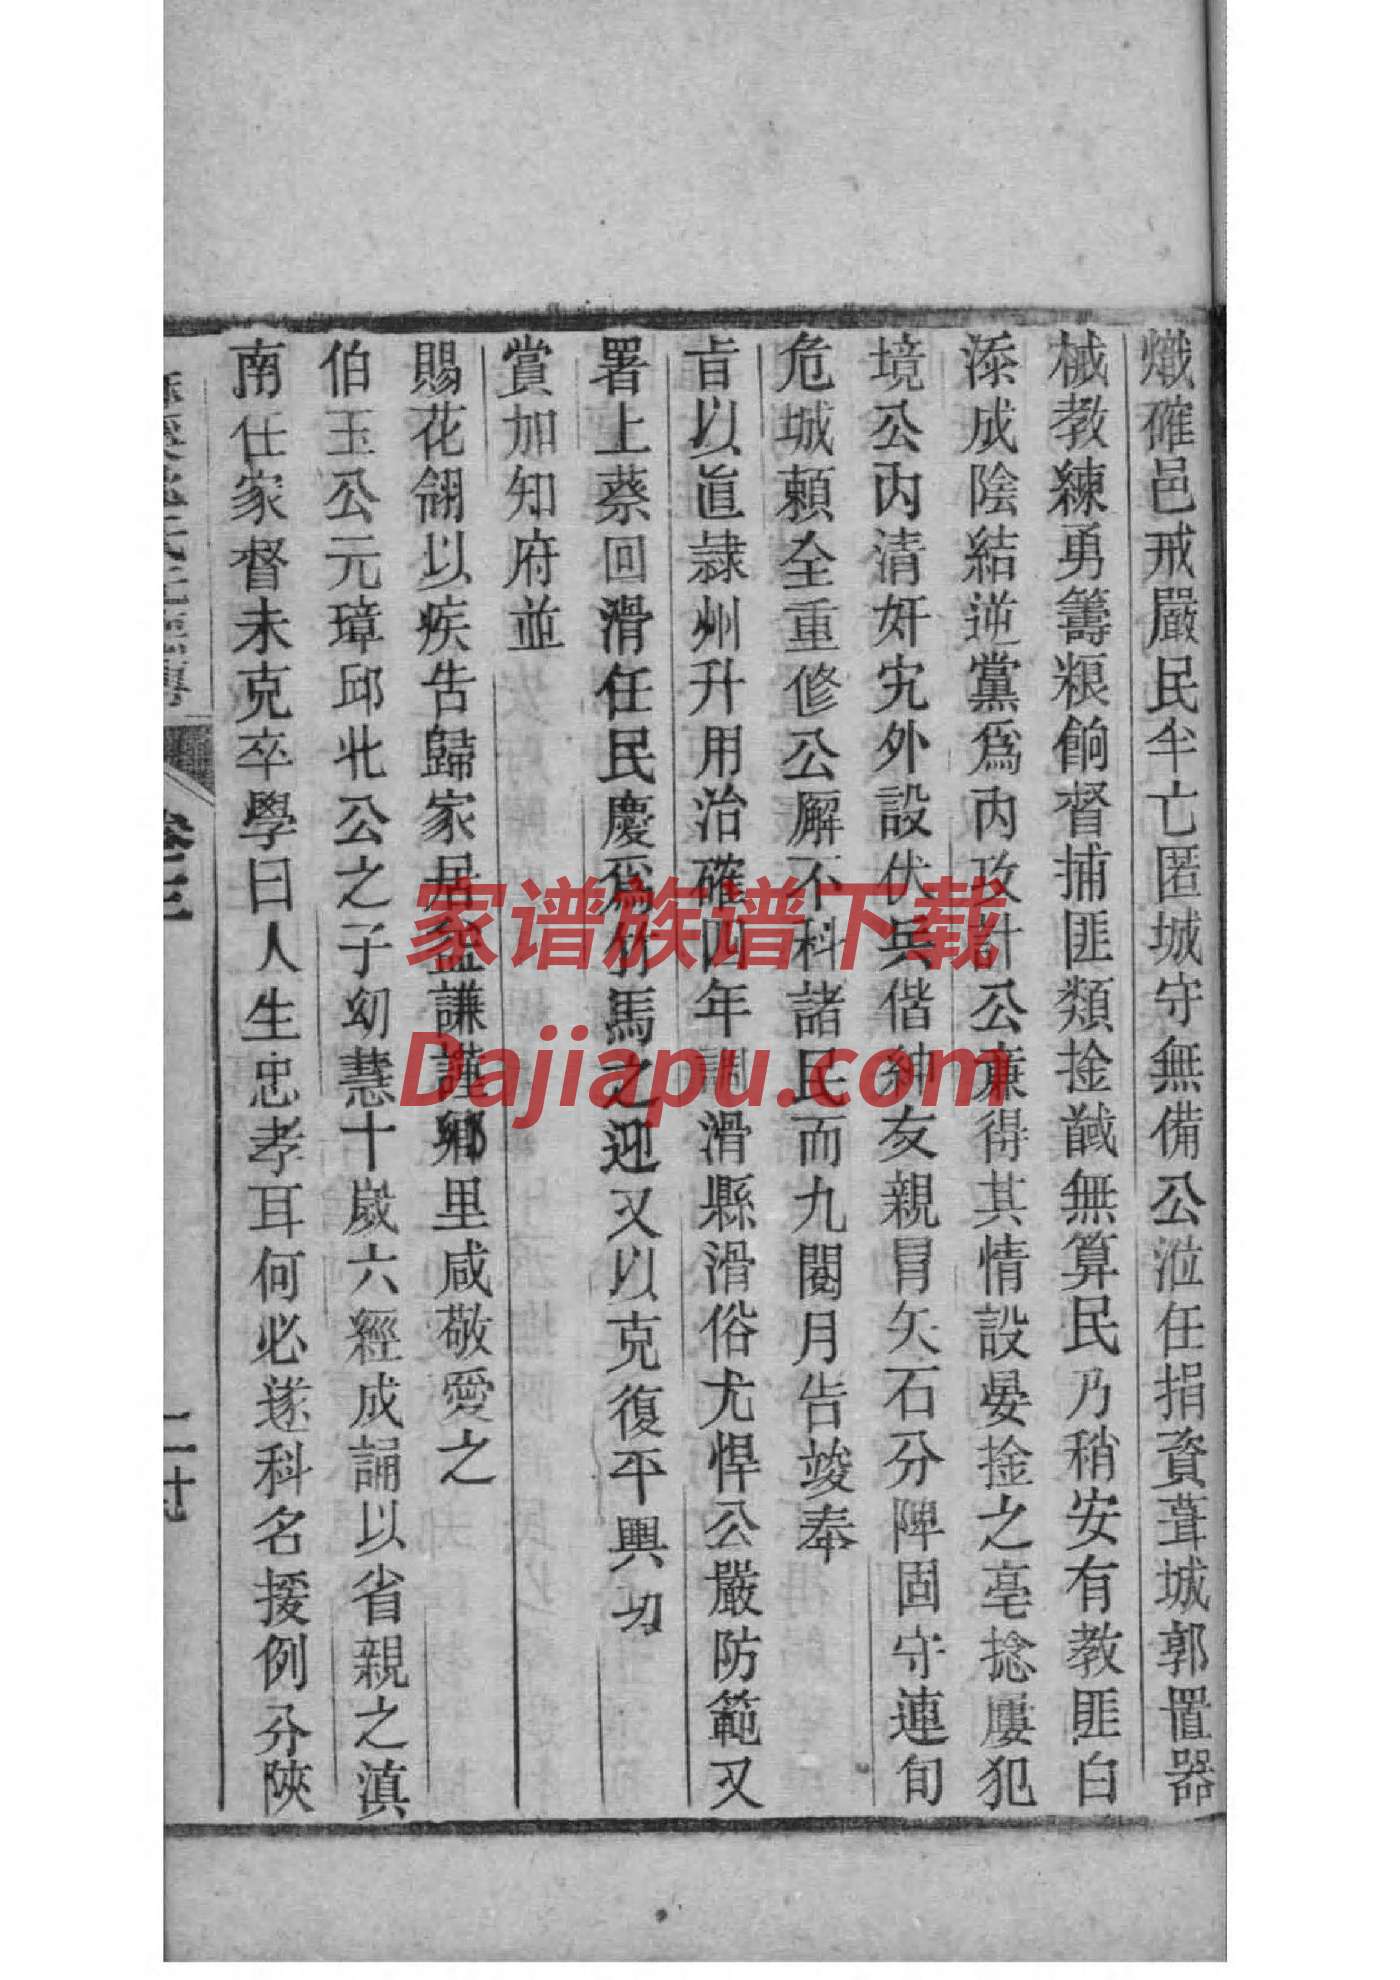 熾確邑戒嚴民半亡匿城守無備公涖任捐資葺城郭置器
械教練勇籌粮餉督捕匪類捦馘無算民乃稍安有教匪白
添成陰結逆黨爲内攻計公廉得其情設晏捦之亳捻屢犯
境公内清奸宄外設伏兵偕紳友親冒矢石分陴固守連旬
危城頼全重修公廨不科諸民而九閱月告竣奉
旨以直隷州升用治確四年調滑縣滑俗尤悍公嚴防範又
署上蔡回滑任民慶爲竹馬之迎又以克復平興切
賞加知府並
賜花翎以疾告歸家居益謙謹鄉里咸敬愛之
伯玉公元璋邱北公之子幼慧十歲六經成誦以省親之滇
南任家督未克卒學曰人生忠孝耳何必遂科名援例分陝
卷三
家谱族谱下载
Dajiapu.com